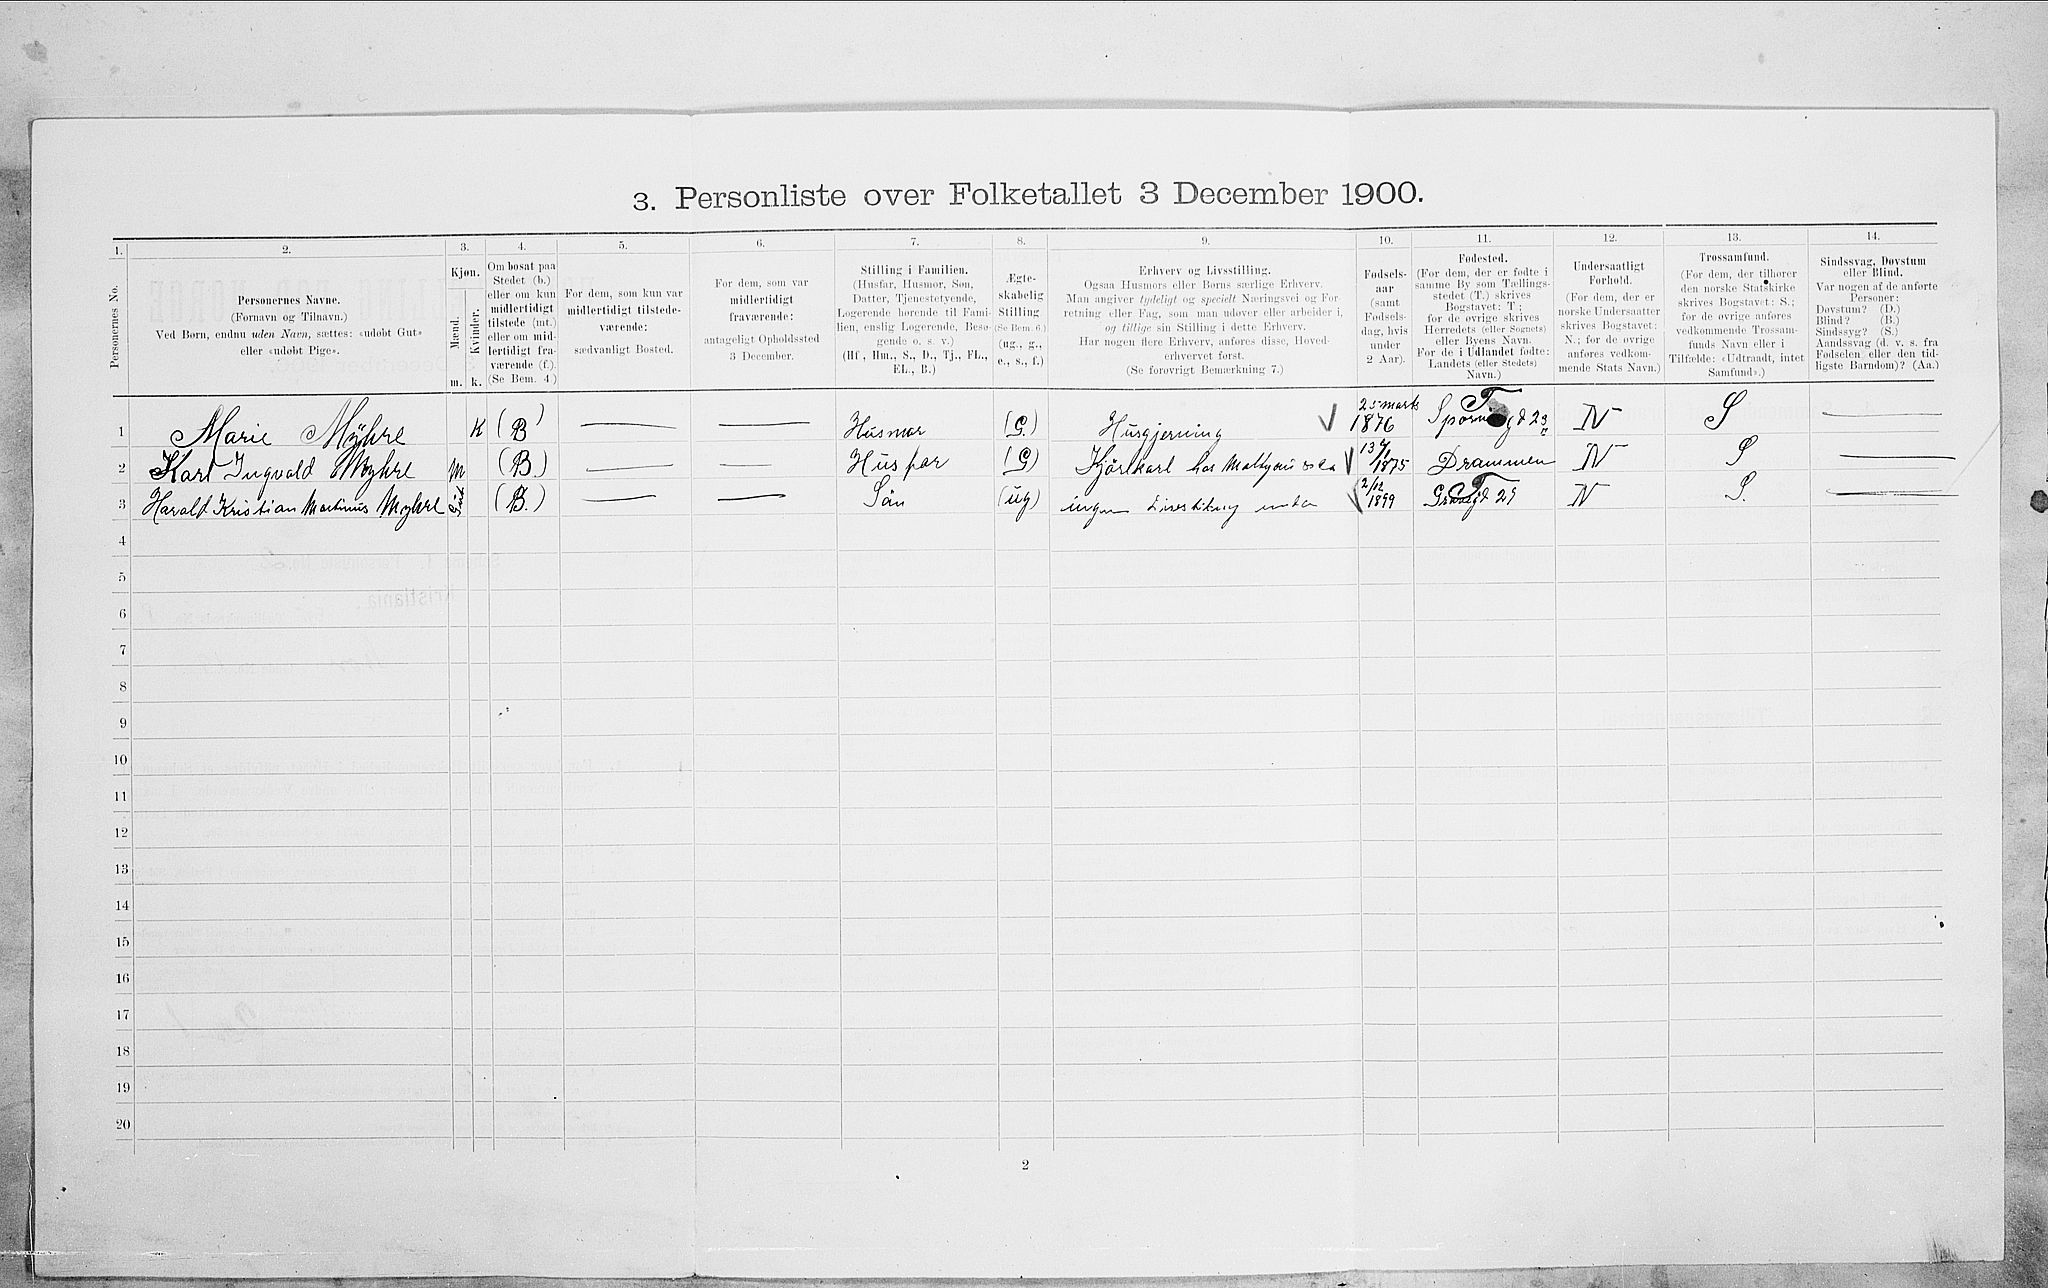 3. Personliste over Folketallet 3 December 1900.
1. 2. 3. 4. 5. 6. 7. 8. 9. 10. 11. 12. 13. 14.
Personernes No.
Personernes Navne.
(Fornavn og Tilnavn.)
Ved Børn, endnu uden Navn, sættes: «udøbt Gut»
eller «udøbt Pige».
Kjøn.
Mænd.
Kvinder.
m. k.
Om bosat paa
Stedet (b.)
eller om kun
midlertidigt
tilstede (mt.)
eller om mid-
lertidigt fra-
værende (f.).
(Se Bem. 4.)
For dem, som kun var
midlertidigt tilstede-
værende:
sædvanligt Bosted.
For dem, som var
midlertidigt
fraværende:
antageligt Opholdssted
3 December.
Stilling i Familien.
(Husfar, Husmor, Søn,
Datter, Tjenestetyende,
Logerende hørende til Fami-
lien, enslig Logerende, Besø-
gende o. s. v.)
(Hf., Hm., S., D., Tj., FL.,
EL., B.)
Ægte-
skabelig
Stilling
(Se Bem. 6.)
(ug., g.,
e., s., f.)
Erhverv og Livsstilling.
Ogsaa Husmors eller Børns særlige Erhverv.
Man angiver tydeligt og specielt Næringsvei og For-
retning eller Fag, som man udøver eller arbeider i,
og tillige sin Stilling i dette Erhverv.
Har nogen flere Erhverv, anføres disse, Hoved-
erhvervet først.
(Se forøvrigt Bemærkning 7.)
Fødsels-
aar
(samt
Fødsels-
dag, hvis
under
2 Aar).
Fødested.
(For dem, der er fødte i
samme By som Tællings-
stedet (T.) skrives
Bogstavet: T;
for de øvrige skrives
Herredets (eller Sognets)
eller Byens Navn.
For de i Udlandet fødte:
Landets (eller Stedets)
Navn.)
Undersaatligt
Forhold.
(For dem, der er
norske Undersaatter
skrives Bogstavet:
N.; for de øvrige
anføres vedkom-
mende Stats Navn.)
Trossamfund.
(For dem, der tilhører
den norske Statskirke
skrives Bogstavet: S.;
for de øvrige anføres
vedkommende Trossam-
funds Navn eller i
Tilfælde: «Udtraadt, intet
Samfund».)
Sindssvag, Døvstum
eller Blind.
Var nogen af de anførte
Personer:
Døvstum? (D.)
Blind? (B.)
Sindssyg? (S.)
Aandssvag (d. v. s. fra
Fødselen eller den tid-
ligste Barndom)? (Aa.)
1 Marie Myhre K (B) Husmor (G.) Husgjerning 25 marts 1876 T N S
2 Karl Ingvald Myhre M (B.) Husfar (G) Kjørekarl hos 13/ 1875 Drammen N S
3 Harald Kristian Martinus Myhre (B.) Sön (ug) ingen 2/12 1899 T N S.
4
5
6
7
8
9
10
11
12
13
14
15
16
17
18
19
20
2